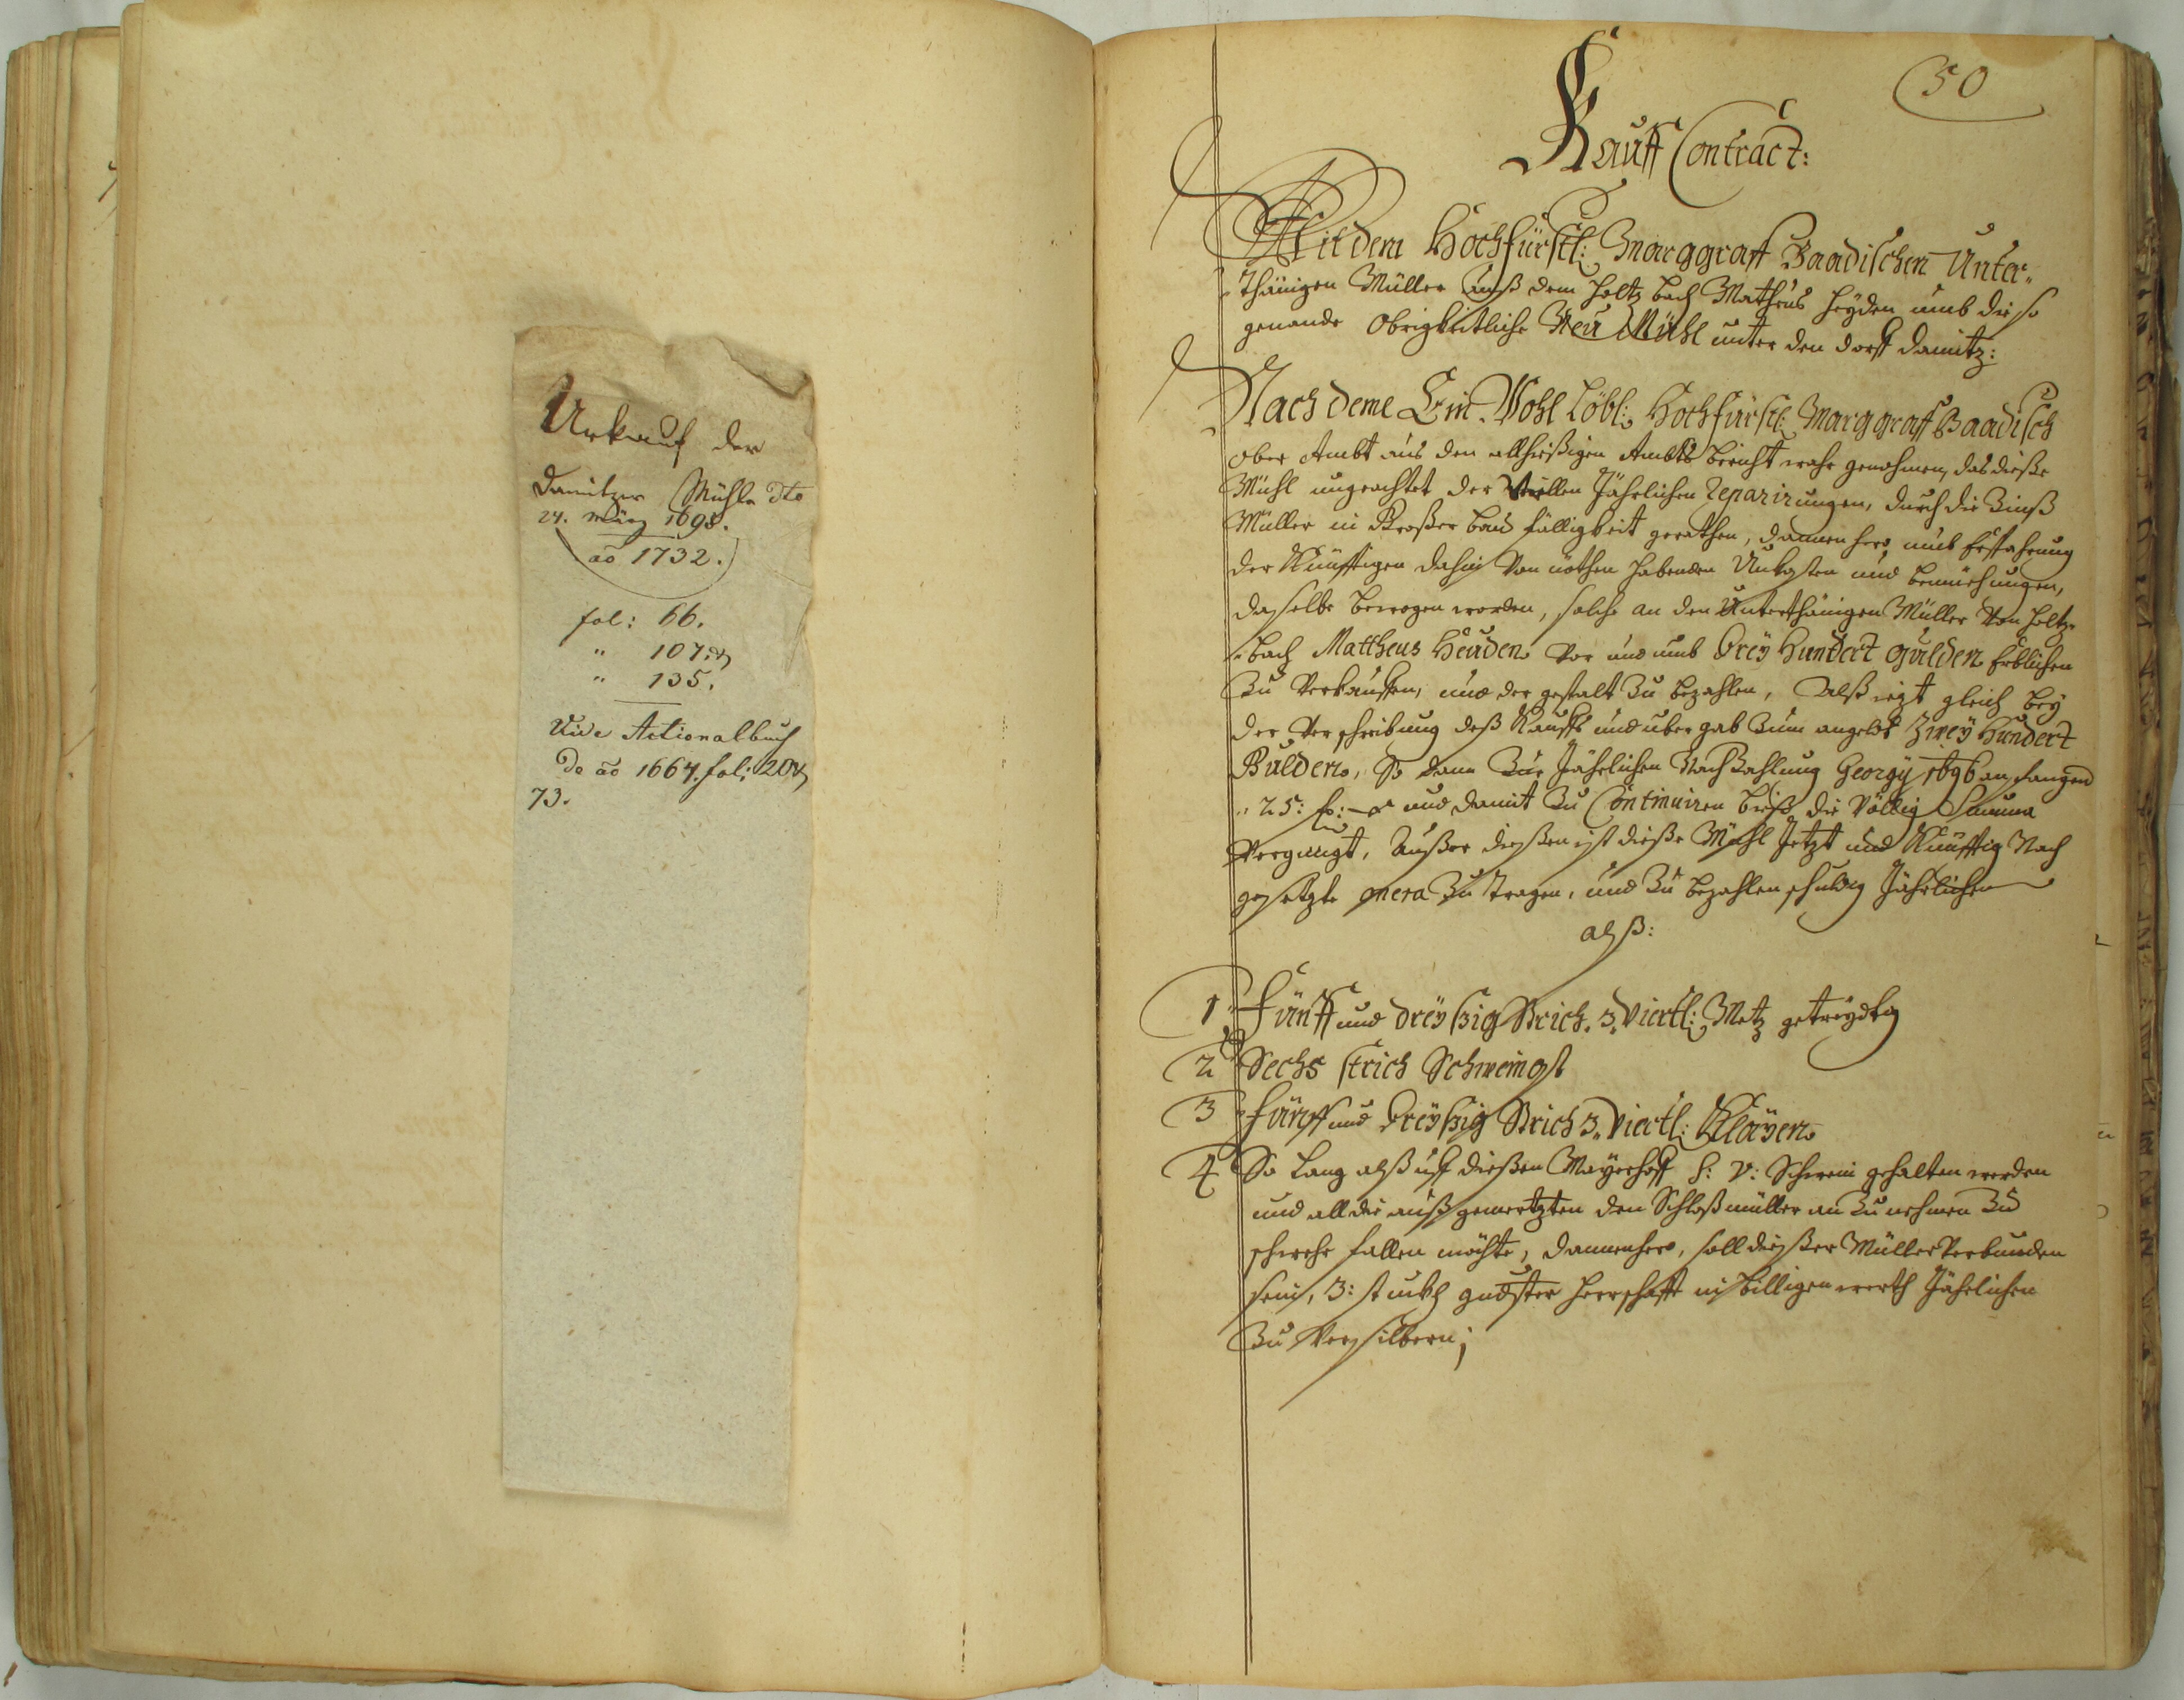 Urkauf der
Damitzer Mühle dto
24. März 1698.
ao 1732.
fol: 66.
" 107.
" 135.
Vide Actionalbuch
De ao 1664. fol: 20
73.
50
Kauff Contract:
Mit dem Hochfürstl: Marggraff Baadischen Unter„
„thänigen Müller auß dem Holtzbach Matheus Heyden umb die so
genande Obrigkeitliche Neu Mühl unter den dorff Damitz:
Nach deme Ein Wohl Löbl: Hochfürstl: Marggraff Baadisch
Ober Ambt aus den allhießigen Ambts bericht wahr genohmen, das dieße
Mühl ungeachtet der Viellen Jährlichen Reparirungen, durch die Zinß
Müller in Großer bau fälligkeit gerathen, dannenhero umb Erspahrung
der Künfftigen dahin Von nöthen habenden Unkosten und bemühungen,
dasselbe bewogen worden, solche an den Unterthänigen Müller Von Holtz„
„bach Mattheus Heuden Vor und umb Drey Hundert Gulden Erblichen
Zu Verkauffen, und der gestalt Zu bezahlen, Alß iezt gleich bey
der Verschreibung deß Kauffs und uber gab Zum angeldt Zwey Hundert
Gulden, So dann Zur Jährlichen Nach Zahlung Georgy 1696 anfangend
„25: fl: und damit Zu Continuiren biß die Völlig Summa
Vergnügt, Außer dießen ist dieße Mühl Jetzt und Künfftig Nach
gesetzte onera Zu tragen, und Zu bezahlen schuldig Jährlichen
alß:
1 Fünff und dreyßig Strich 3. Viertl: Metz getreydtg
2 Sechs strich Schweingst
3 Fünff und Dreyßig Strich 3. Viertl: Kleyen
4 So lang alß uff dießen Mayerhoff S: V: Schwein gehalten werden
und all die auß gemertzten den Schloßmüller an Zu nehmen Zu
schwehr fallen möchte, dannenhero, soll dießer Müller Verbunden
sein, 3: stückh gndster Herrschafft in billigen werth Jährlichen
Zu Versilbern;